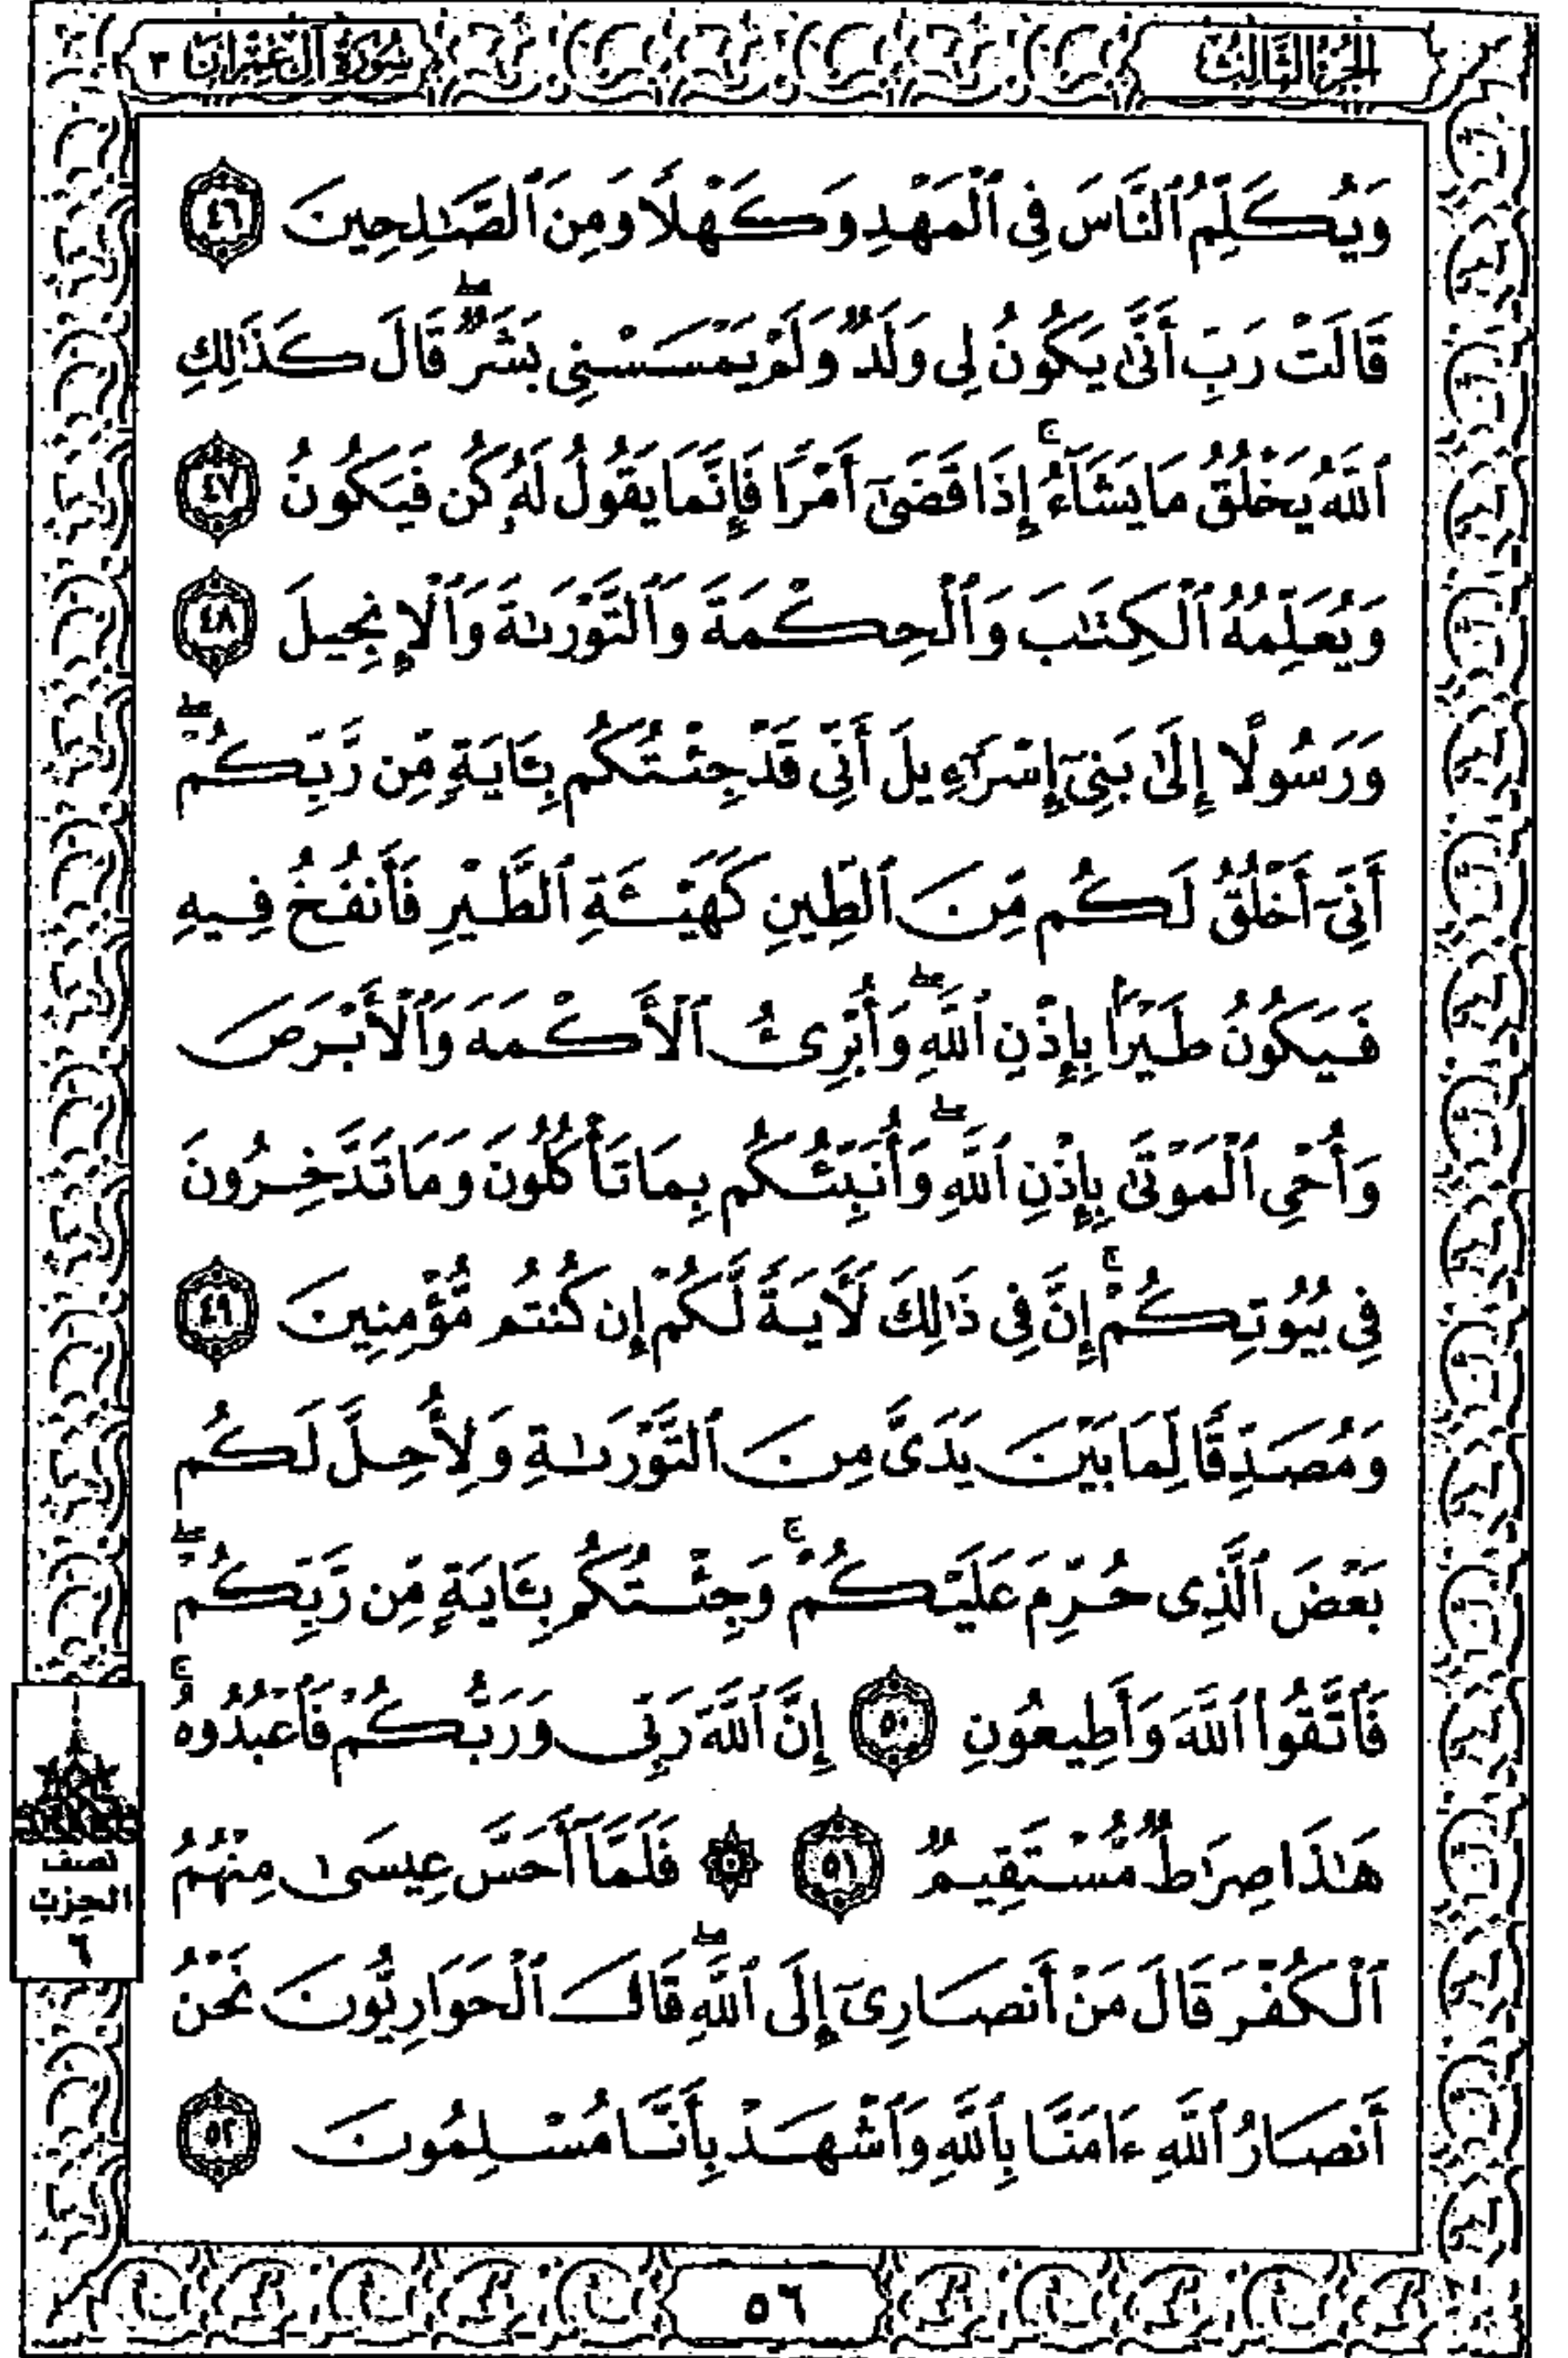 الجزء الثالث
سورة آل عمران ٣
وَيُكَلِّمُ ٱلنَّاسَ فِى ٱلْمَهْدِ وَكَهْلًا وَمِنَ ٱلصَّـٰلِحِينَ ٤٦
قَالَتْ رَبِّ أَنَّىٰ يَكُونُ لِى وَلَدٌ وَلَمْ يَمْسَسْنِى بَشَرٌ ۖ قَالَ كَذَٰلِكِ
ٱللَّهُ يَخْلُقُ مَا يَشَآءُ ۚ إِذَا قَضَىٰٓ أَمْرًا فَإِنَّمَا يَقُولُ لَهُۥ كُن فَيَكُونُ ٤٧
وَيُعَلِّمُهُ ٱلْكِتَـٰبَ وَٱلْحِكْمَةَ وَٱلتَّوْرَىٰةَ وَٱلْإِنجِيلَ ٤٨
وَرَسُولًا إِلَىٰ بَنِىٓ إِسْرَٰٓءِيلَ أَنِّى قَدْ جِئْتُكُم بِـَٔايَةٍ مِّن رَّبِّكُمْ ۖ
أَنِّىٓ أَخْلُقُ لَكُم مِّنَ ٱلطِّينِ كَهَيْـَٔةِ ٱلطَّيْرِ فَأَنفُخُ فِيهِ
فَيَكُونُ طَيْرًۢا بِإِذْنِ ٱللَّهِ ۖ وَأُبْرِئُ ٱلْأَكْمَهَ وَٱلْأَبْرَصَ
وَأُحْىِ ٱلْمَوْتَىٰ بِإِذْنِ ٱللَّهِ ۖ وَأُنَبِّئُكُم بِمَا تَأْكُلُونَ وَمَا تَدَّخِرُونَ
فِى بُيُوتِكُمْ ۚ إِنَّ فِى ذَٰلِكَ لَـَٔايَةً لَّكُمْ إِن كُنتُم مُّؤْمِنِينَ ٤٩
وَمُصَدِّقًا لِّمَا بَيْنَ يَدَىَّ مِنَ ٱلتَّوْرَىٰةِ وَلِأُحِلَّ لَكُم
بَعْضَ ٱلَّذِى حُرِّمَ عَلَيْكُمْ ۚ وَجِئْتُكُم بِـَٔايَةٍ مِّن رَّبِّكُمْ ۖ
فَٱتَّقُوا۟ ٱللَّهَ وَأَطِيعُونِ ٥٠ إِنَّ ٱللَّهَ رَبِّى وَرَبُّكُمْ فَٱعْبُدُوهُ ۚ
هَـٰذَا صِرَٰطٌ مُّسْتَقِيمٌ ٥١ ۞ فَلَمَّآ أَحَسَّ عِيسَىٰ مِنْهُمُ
ٱلْكُفْرَ قَالَ مَنْ أَنصَارِىٓ إِلَى ٱللَّهِ ۖ قَالَ ٱلْحَوَارِيُّونَ نَحْنُ
أَنصَارُ ٱللَّهِ ءَامَنَّا بِٱللَّهِ وَٱشْهَدْ بِأَنَّا مُسْلِمُونَ ٥٢
نصف
الحزب
٦
٥٦